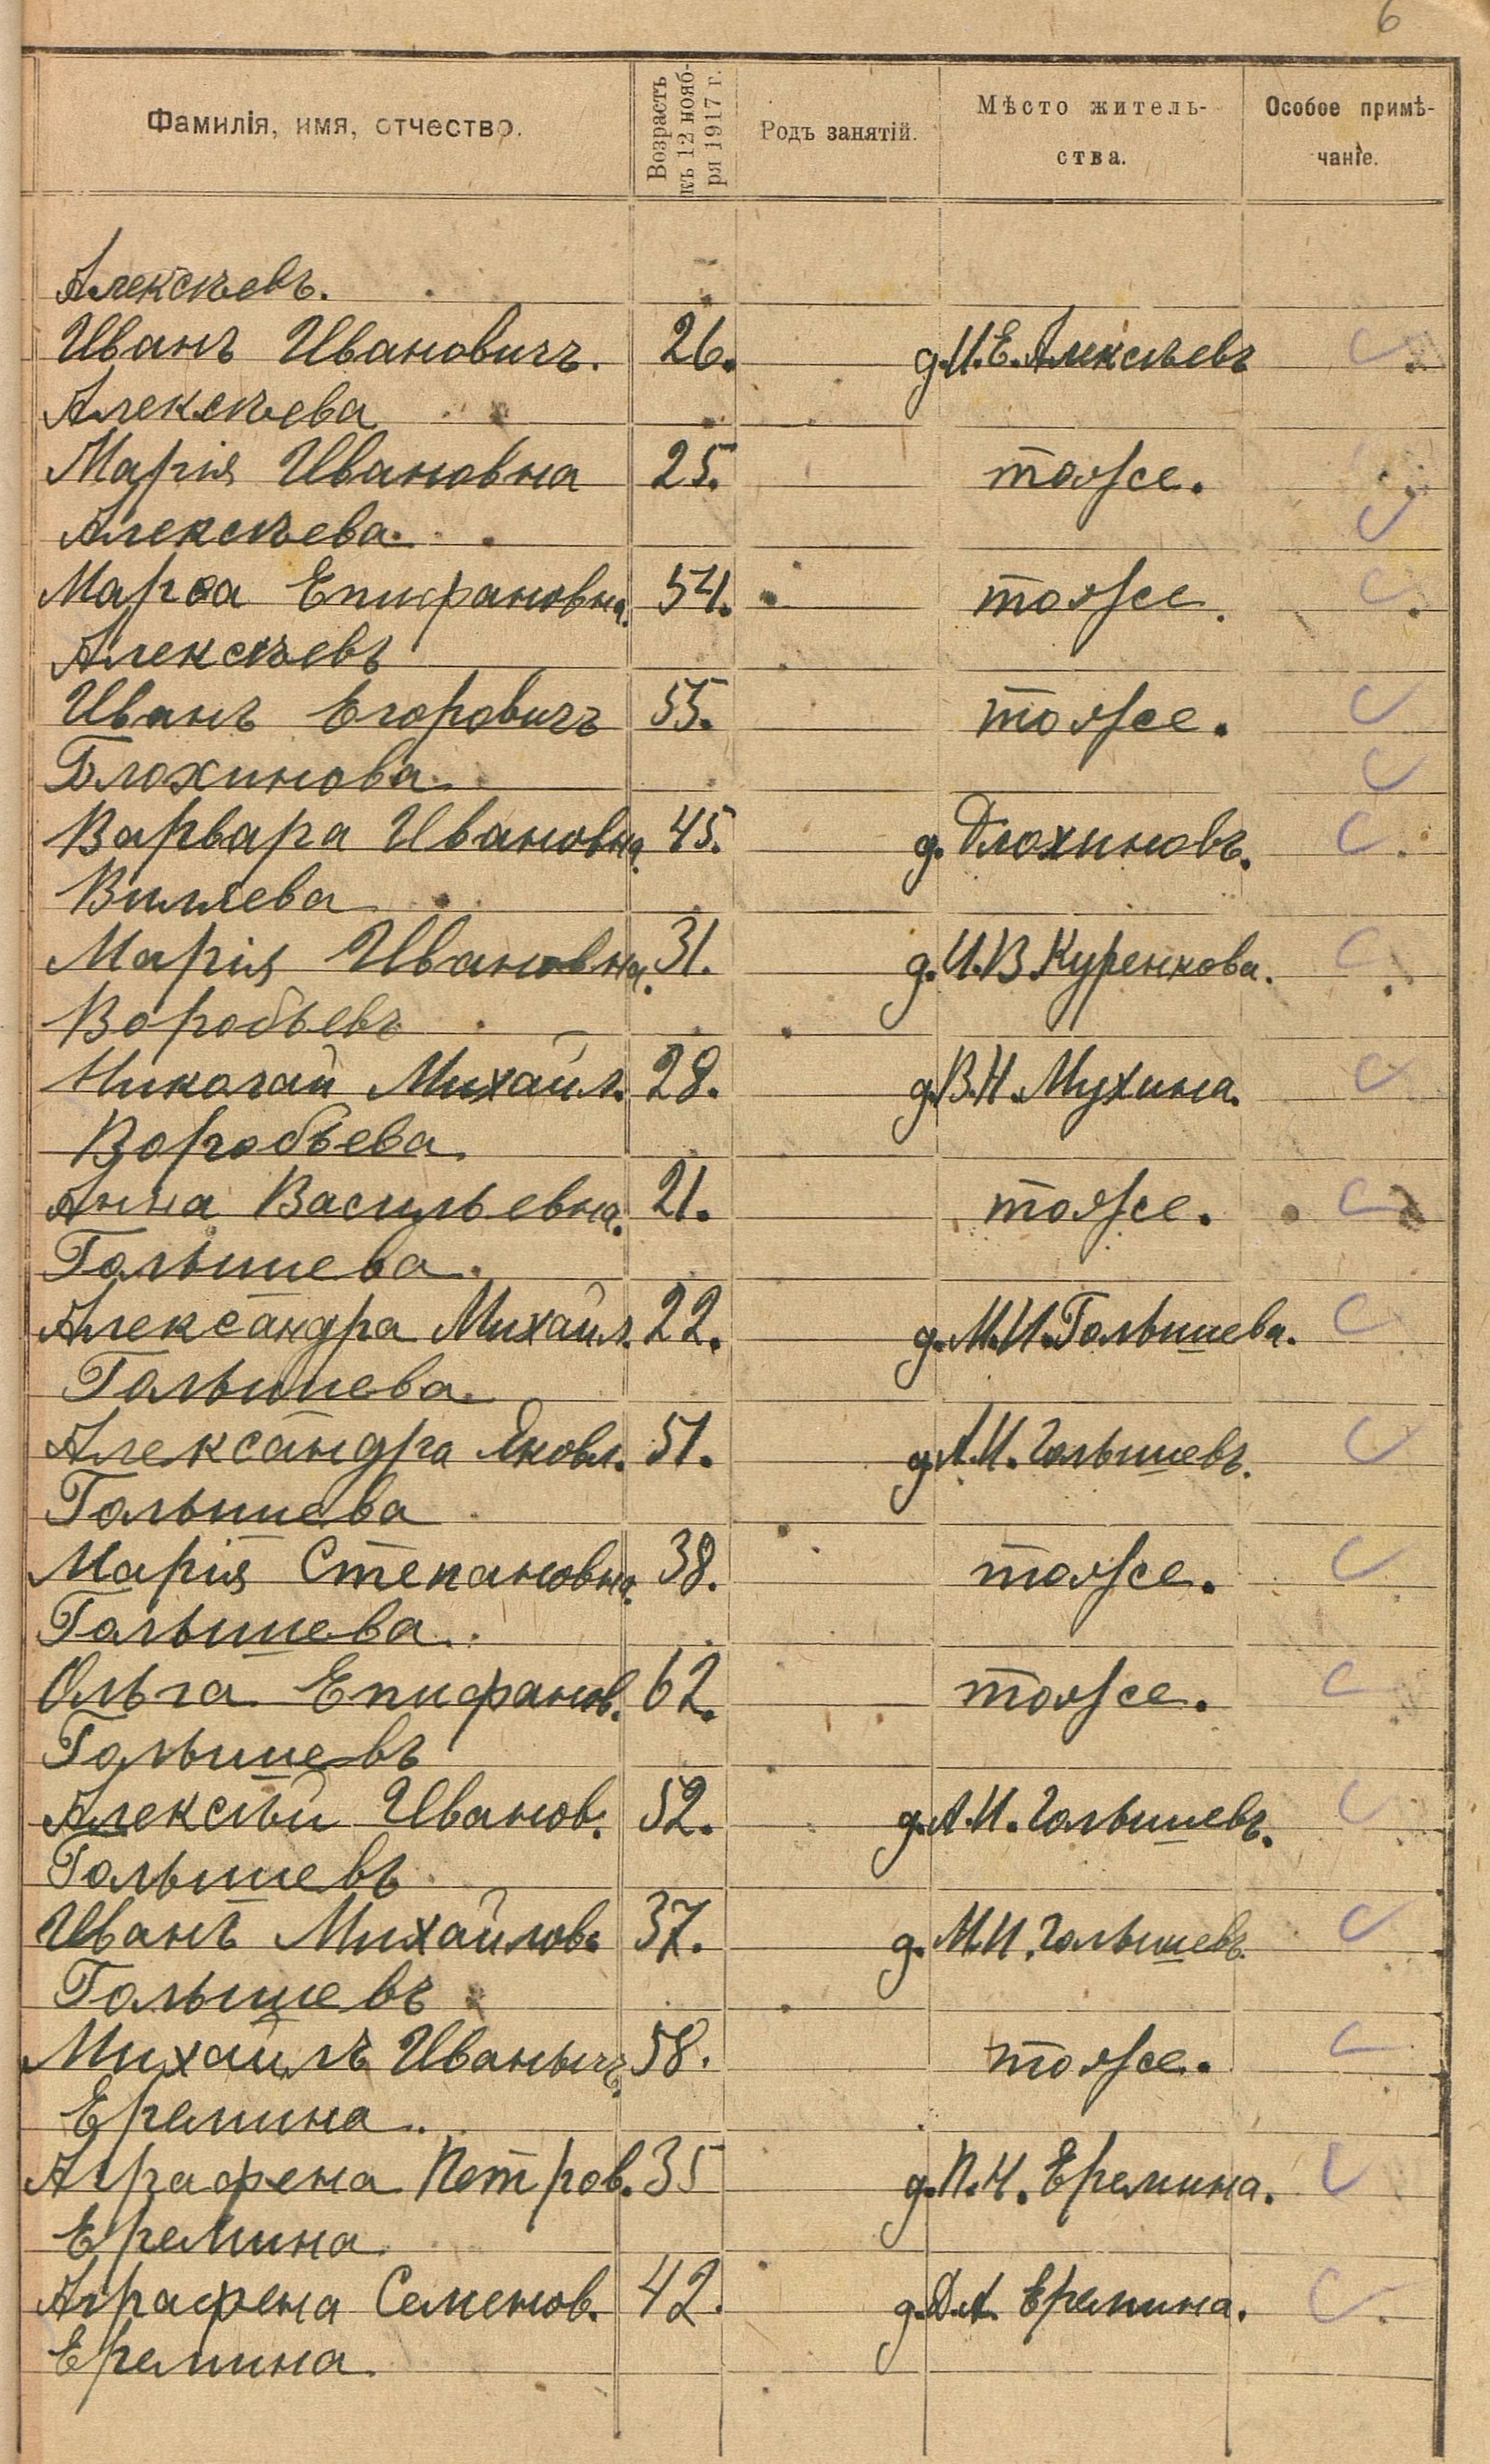 6
Фамилія, имя, отчество. Возрастъ къ 12 нояб- ря 1917 г. Родъ занятій. Мѣсто житель- ства. Особое примѣ- чаніе.
Алексѣевъ.
Иванъ Ивановичъ. 26. д. И. Е. Алексѣевъ
Алексѣева
Марія Ивановна 25. тоже.
Алексѣева.
Марѳа Епифановна. 54. тоже.
Алексѣевъ
Иванъ Егоровичъ 55. тоже.
Блохинова.
Варвара Ивановна. 45. д. Блохиновъ.
Виляева
Марія Ивановна. 31. д. И. В. Куренкова.
Воробьевъ
Николай Михайл. 28. д. В. Н. Мухина.
Воробьева.
Анна Васильевна. 21. тоже.
Голышева.
Александра Михайл. 22. д. М. И. Голышева.
Голышева.
Александра Яковл. 51. д. А. И. Голышевъ.
Голышева
Марія Степановна. 38. тоже.
Голышева.
Ольга Епифанов. 62. тоже.
Голышевъ
Алексѣй Иванов. 52. д. А. И. Голышевъ.
Голышевъ
Иванъ Михайлов. 37. д. М. И. Голышевъ.
Голышевъ
Михаилъ Иванычъ. 58. тоже.
Еремина.
Аграфена Петров. 35 д. П. И. Еремина.
Еремина.
Аграфена Семенов. 42. д. Д. А. Еремина.
Еремина.